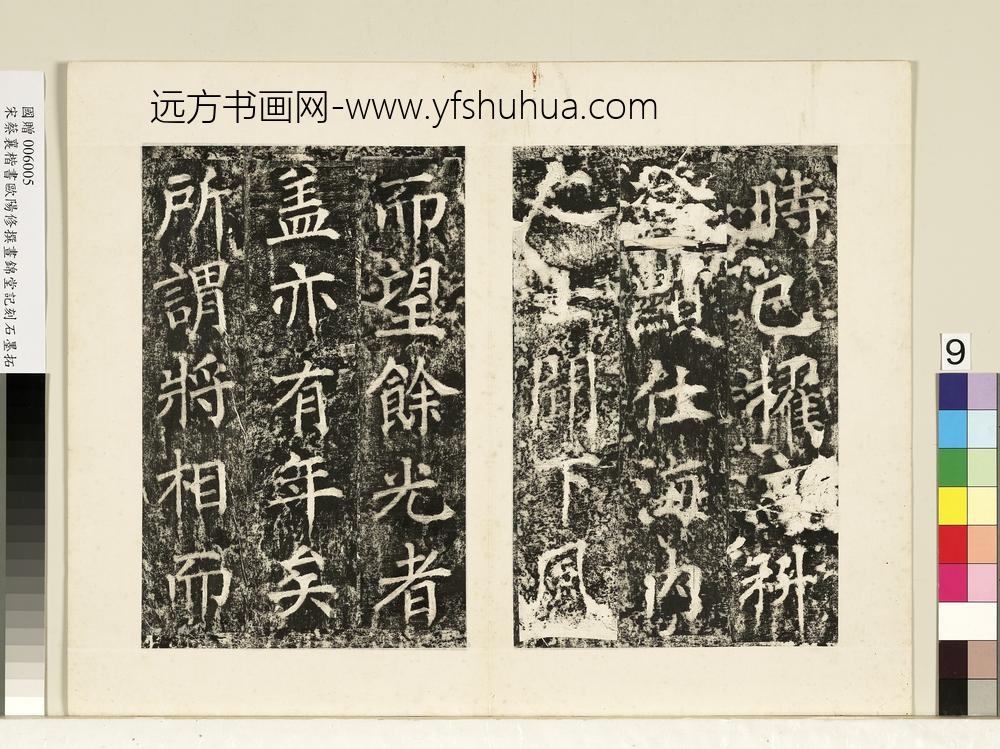 远方书画网-www.yfshuhua.com
國贈006005
宋蔡襄楷書歐陽修撰晝錦堂記刻石墨拓
9
時已擢科
登顯仕海內
之士聞下風
而望餘光者
盖亦有年矣
所謂將相而